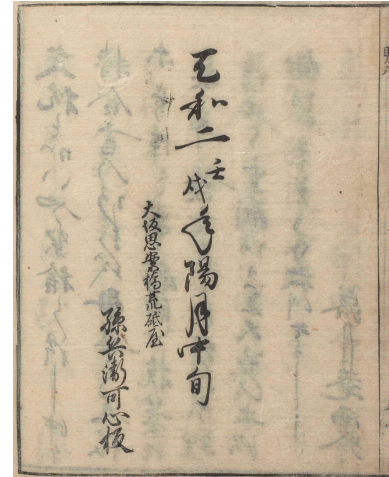 天和二壬戌年陽月中旬
大坂思案橋荒砥屋
孫兵衛可心板